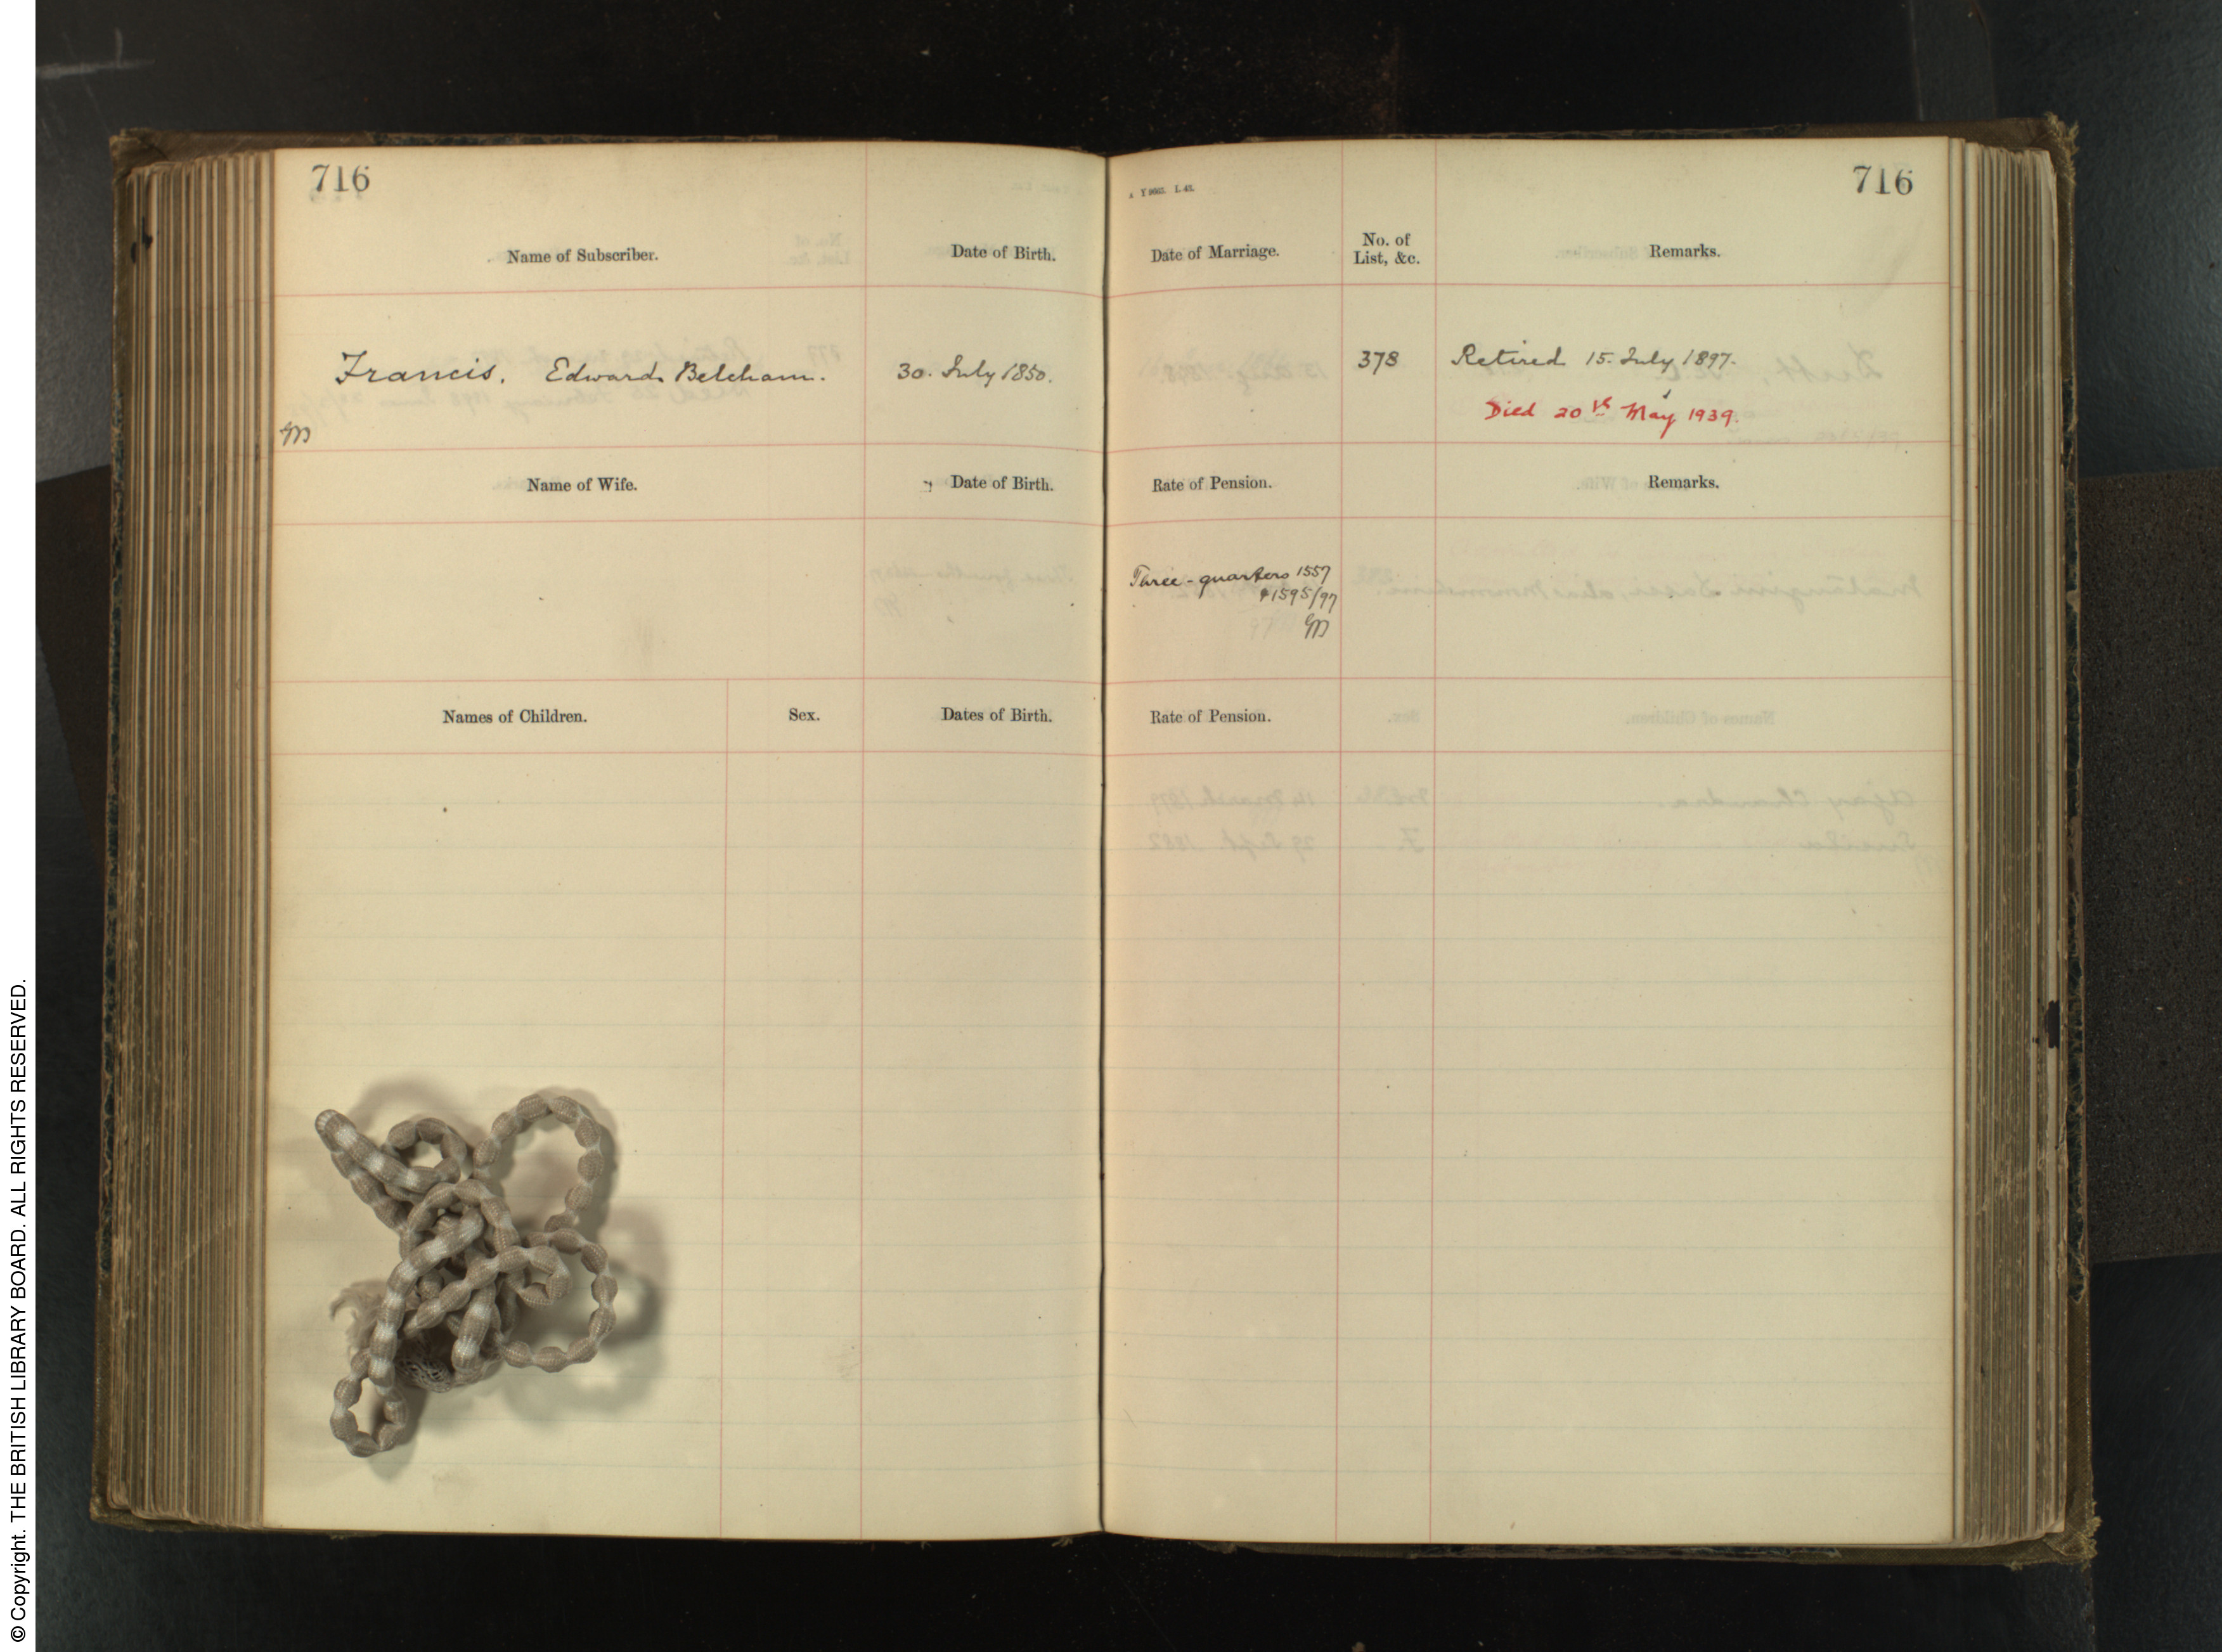 716
A Y 9663. L 43.
716
Name of Subscriber.
Date of Birth.
Date of Marriage.
No. of
List, &c.
Remarks.
Francis. Edward Belcham.
30. July 1850.
378
Retired 15. July 1897.
Died 20th May 1939.
Name of Wife.
Date of Birth.
Rate of Pension.
Remarks.
Three-quarters 1557
& 1595/97
Names of Children.
Sex.
Dates of Birth.
Rate of Pension.
© Copyright. THE BRITISH LIBRARY BOARD. ALL RIGHTS RESERVED.